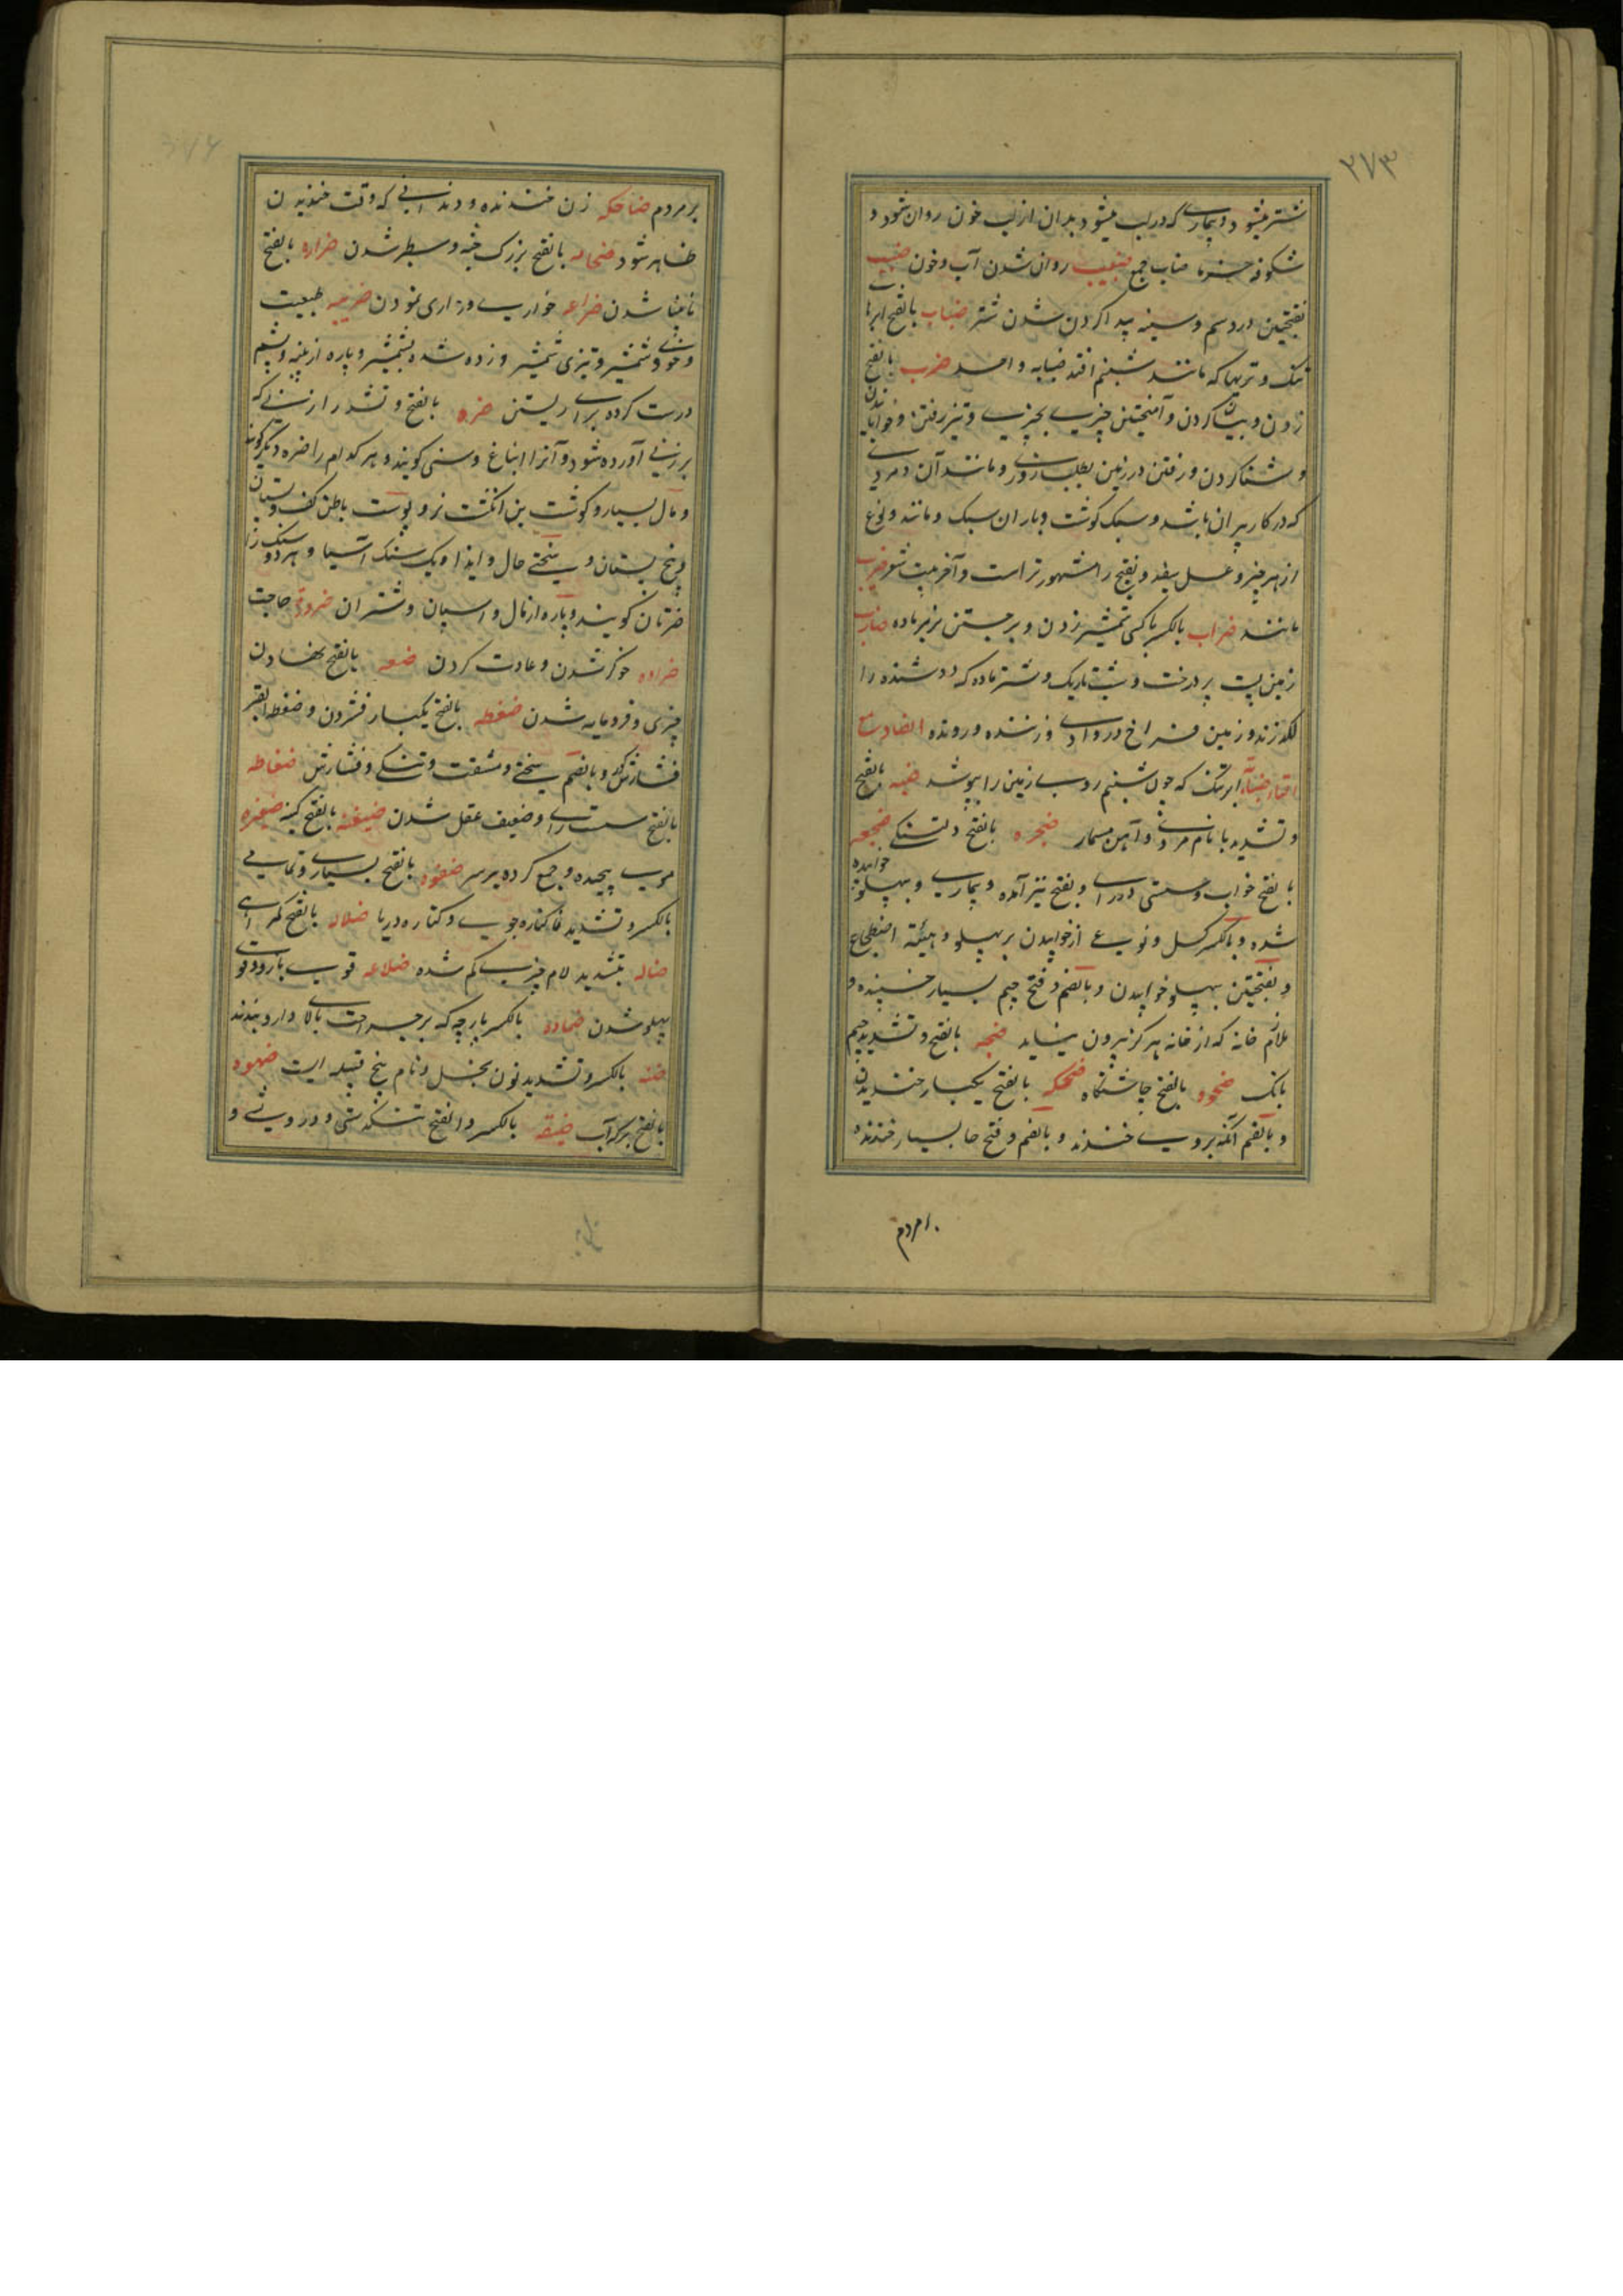 ۲۷۳
شتر میشود و بیماری که در لب میشود بدان از لب خون روان شود و
شکوفه خرما ضباب جمع ضبیب روان شدن آب و خون ضبب
بفتحتین درد سم و سینه پیدا کردن شدن شتر ضباب بالفتح ابرها
تنک و تریها که مانند شبنم افتد ضبابه واحد ضرب بالفتح
زدن و بیان کردن و آمیختن چیزی بچیزی و تیز رفتن و خوابانیدن
و شنا کردن و رفتن در زمین بطلب روزی و مانند آن و مردی
که در کار بران باشد و سبک گوشت و باران سبک و مانند و نوع
از هر چیز و عسل سفید و بفتح را مشهورتر است و آخر بیت شعر ضریب
مانند ضراب بالکسر با کسی شمشیر زدن و برجستن نر بر ماده ضارب
زمین پست پر درخت و شب تاریک و شتر ماده که دوشنده را
لکد زند و زمین فراخ در وادی و زننده و رونده الضاد مع
التاء ضبابة ابر تنک که چون شبنم روی زمین را بپوشد ضبه بالفتح
و تشدید با نام مردی و آهن مسمار ضجره بالفتح دلتنگی ضجعه
بالفتح خواب و سستی در رای و بفتح نیز آمده و بیماری و بپهلو خوابیده
شده و بالکسر کسل و نوعی از خوابیدن بر پهلو و هیئته اضطجاع
و بفتحتین بپهلو خوابیدن و بالضم و فتح جیم بسیار خسپنده و
ملازم خانه که از خانه هرگز بیرون نیاید ضجه بالفتح و تشدید جیم
بانک ضحوه بالفتح چاشتگاه ضحکه بالفتح یکبار خندیدن
و بالضم آنکه بروی خندند و بالضم و فتح حا بسیار خندنده
بر مردم
بر مردم ضاحکه زن خندنده و دندانی که وقت خندیدن
ظاهر شود ضخامه بالفتح بزرک جثه و سطبر شدن ضراره بالفتح
نابینا شدن ضراعه خواری و زاری نمودن ضریبه طبیعت
و خوی و شمشیر و تیزی شمشیر و زده شده بشمشیر و پاره از پنبه و پشم
درست کرده برای ریستن ضره بالفتح و تشدید را زنی که
بر زنی آورده شود و آنرا انباغ و وسنی کویند و هر کدام را ضره دیگر کویند
و مال بسیار و کوشت بن انگشت نر و پوست باطن کف و پستان
و بیخ پستان و سختی حال و ایذا و یک سنک آسیا و هر دو سنک را
ضرتان کویند و پاره از مال و اسپان و شتران ضرورة حاجت
ضراوه خوکر شدن و عادت کردن ضعه بالفتح نهادن
چیزی و فرومایه شدن ضغطه بالفتح یکبار فشردن و ضغطه القبر
فشارش کور و بالضم سختی و مشقت و تنکی و فشارش ضفاطه
بالفتح سست رای و ضعیف عقل شدن ضغینه بالفتح کینه ضفیره
موی پیچیده و جمع کرده بر سر ضفوه بالفتح بسیاری و تمامی
بالکسر و تشدید فا کناره جوی و کناره دریا ضلاله بالفتح گمراهی
ضاله بتشدید لام چیزی گم شده ضلاعه قوی بازو و قوی
پهلو شدن ضماده بالکسر پارچه که بر جراحت بالا دارو بندند
ضنه بالکسر و تشدید نون بخل و نام پنج قبیله است ضهوه
بالفتح برکه آب ضیقه بالکسر و الفتح تنگدستی و درویشی و